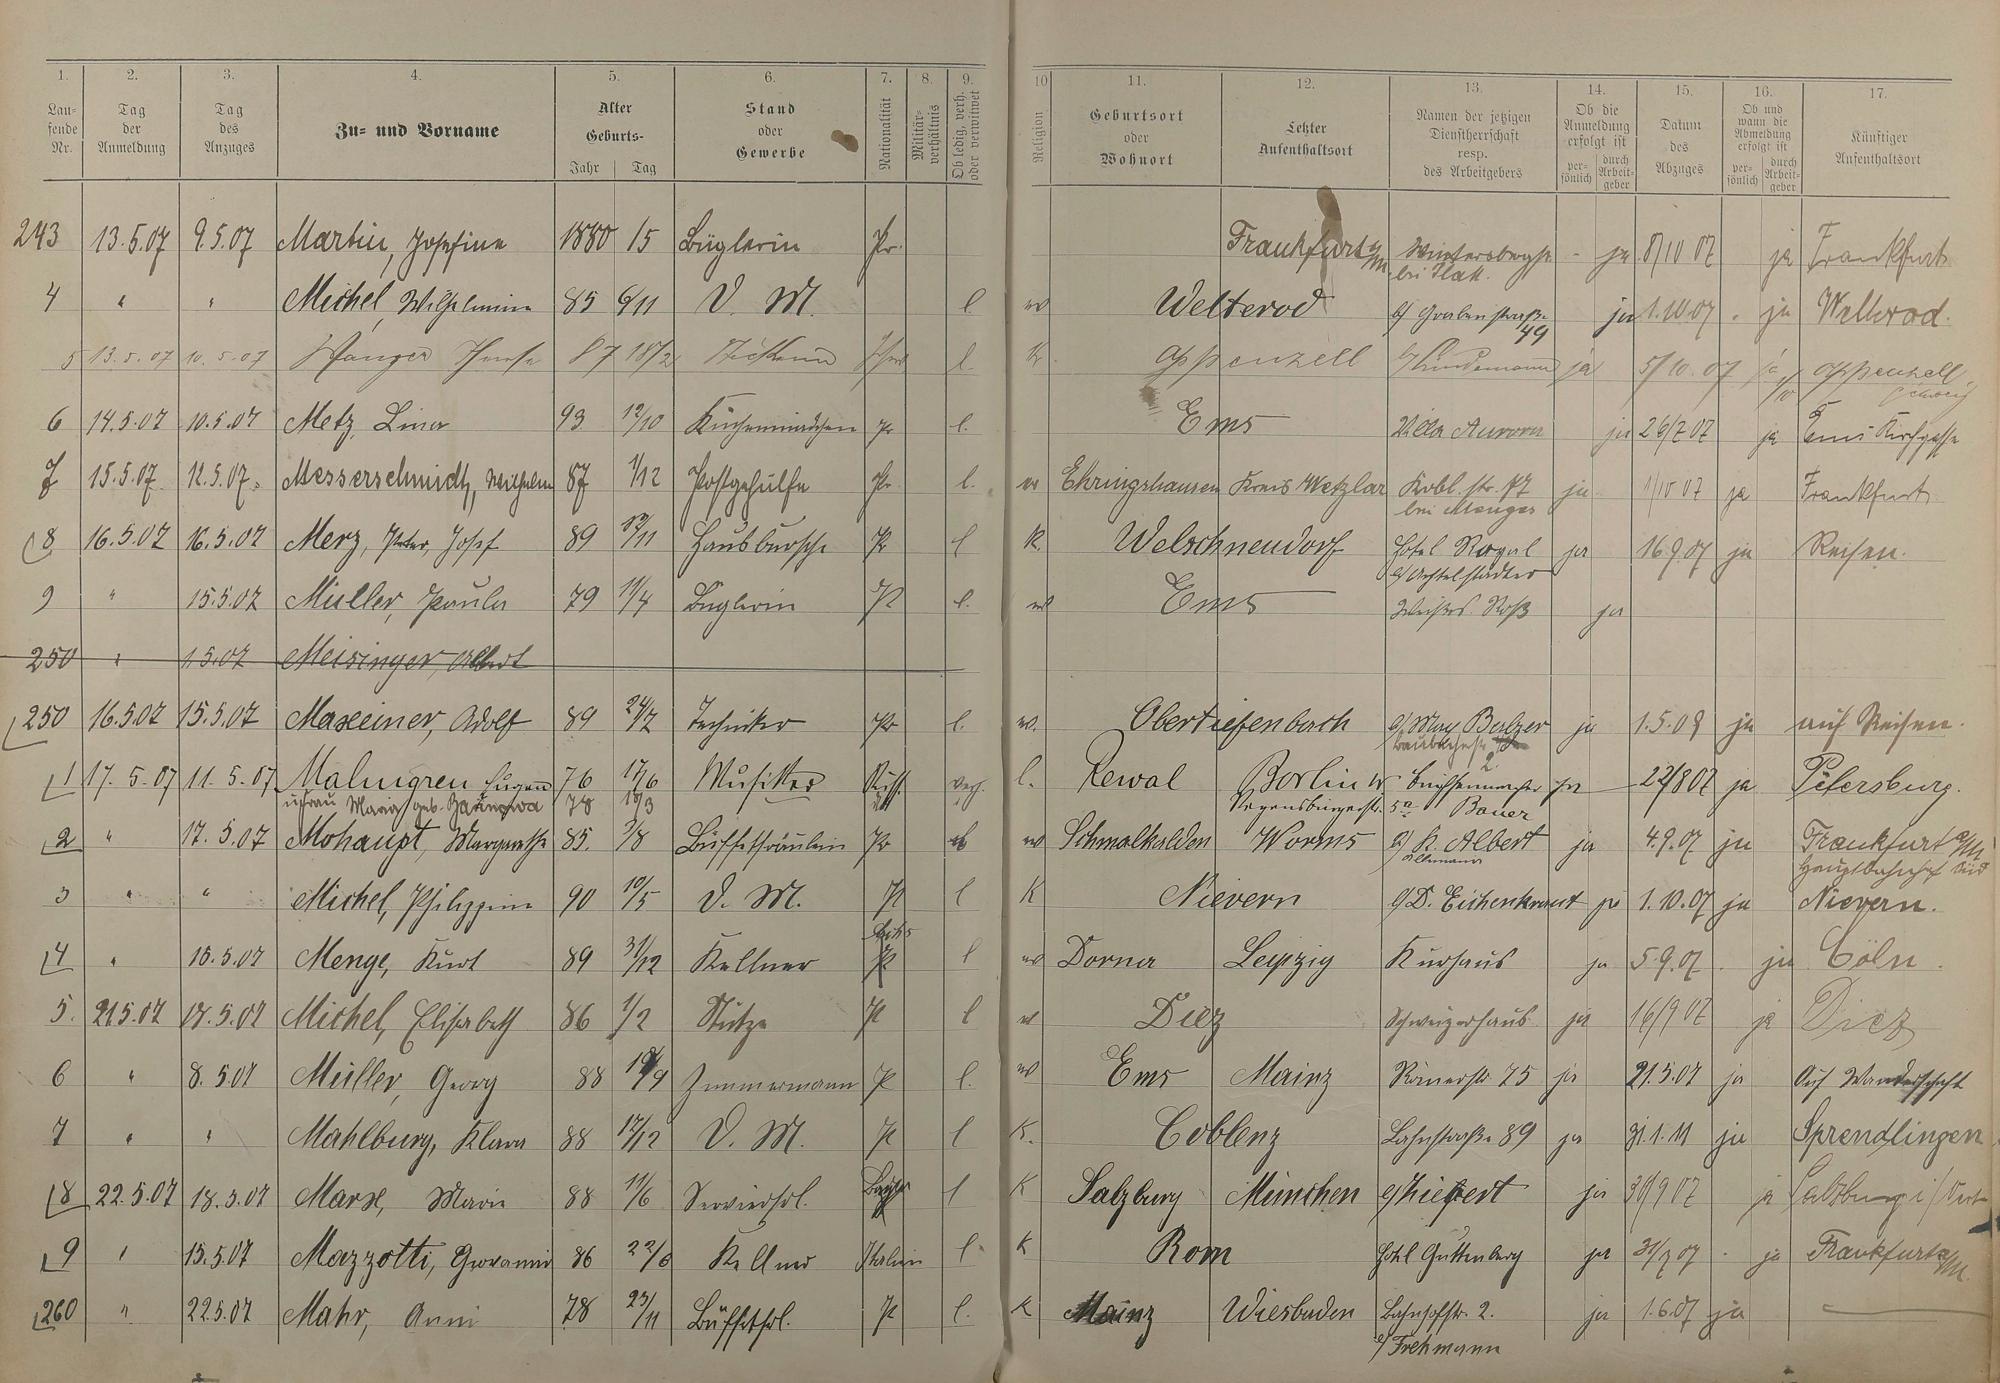 1. 2. 3. 4. 5. 6. 7. 8. 9. 10 11. 12. 13. 14. 15. 16. 17.
Lau-fende Nr. Tag der Anmeldung Tag des Anzuges Zu- und Vorname Alter Geburts- Jahr Tag Stand oder Gewerbe Nationalität Militär-verhältnis Ob ledig, verh. oder verwitwet Religion Geburtsort oder Wohnort Letzter Aufenthaltsort Namen der jetzigen Dienstherrschaft resp. des Arbeitgebers Ob die Anmeldung erfolgt ist per-sönlich durch Arbeit-geber Datum des Abzuges Ob und wann die Abmeldung erfolgt ist per-sönlich durch Arbeit-geber Künftiger Aufenthaltsort
243 13.5.07 9.5.07 Martin, Josefine 1880 1/5 Büglerin Pr. Frankfurt a/M. - ja 8/10 07 ja Frankfurt
4 " " Michel, Wilhelmine 85 6/11 D. M. l Welterod b/ Grabenstraße 49 ja 1.10.07 . ja Welterod.
5 13.5.07 10.5.07 87 18/2 l. K. Appenzell b/ Lindemann ja 5/10 07 ja Appenzell Schweiz
6 14.5.07 10.5.07 Metz, Lina 93 12/10 Küchenmädchen Pr l. Ems Villa Aurora ja 26/7 07 ja Ems Kirchgasse
7 15.5.07 12.5.07. Messerschmidt, Wilhelm 87 1/12 Postgehülfe Pr. l. Ehringshausen Kreis Wetzlar Kobl. str. bei Menges ja 1/10 07 ja Frankfurt
8 16.5.07 16.5.07 Merz, Peter, Josef 89 Hausbursche Pr l K. Welschneudorf Hotel Royal b/ Achtelstädter ja 16.9.07 ja Reisen.
9 " 15.5.07 Müller, Paula 79 11/4 Büglerin Pr l. Ems Weißes Roß ja
250 " 15.07 Meisinger, Albert
250 16.5.07 15.5.07 Maxeiner, Adolf 89 24/7 Techniker Pr l. w. Obertiefenbach b/ May Balzer ja 1.5.08 ja auf Reisen.
1 17.5.07 11.5.07 Malmgren Eugen 76 17/6 Musiker Russ. l. Rewal Berlin W 22/8 07 ja Petersburg.
u. frau Maria geb. 78 18/3 Regensburgerstr. 5a Bauer
2 " 17.5.07 Mohaupt, Margarethe 85. 3/8 Büffetfräulein Pr Schmalkalden Worms b/ K. Albert ja 4.9.07 ja Frankfurt a/M Hauptbahnhof Süd
3 " " Michel, Philippine 90 10/5 D. M. Pr l K Nievern b/ D. Eichenkraut ja 1.10.07 ja Nievern.
4 " 15.5.07 Menge, Kurt 89 31/12 Kellner l Dorna Leipzig Kurhaus ja 5.9.07. ja Cöln.
5. 21.5.07 18.5.07 Michel, Elisabeth 86 1/2 Stütze Pr l Diez Schweizerhaus ja 16/9 07 ja Diez
6 " 8.5.07 Müller, Georg 88 Zimmermann Pr l. Ems Mainz Römerstr. 75 ja 21.5.07 ja Auf Wanderschaft
7 " " Mahlburg, Klara 88 17/12 D. M. Pr l K. Coblenz Lahnstraße 89 ja 31.1.11 ja Sprendlingen
8 22.5.07 18.5.07 Marx, Marie 88 11/6 Servierfrl. l K Salzburg München ja 30/9 07 ja Salzburg
9 " 15.5.07 Mazzotti, Giovanni 86 22/6 Kellner Italien l. K Rom Hotel Guttenberg ja 31/7 07 . ja Frankfurt a/M.
260 " 22.5.07 Mahr, Anni 78 23/11 Büffetfrl. Pr l. K Mainz Wiesbaden Bahnhofstr. 2. b/ Frehmann ja 1.6.07 ja